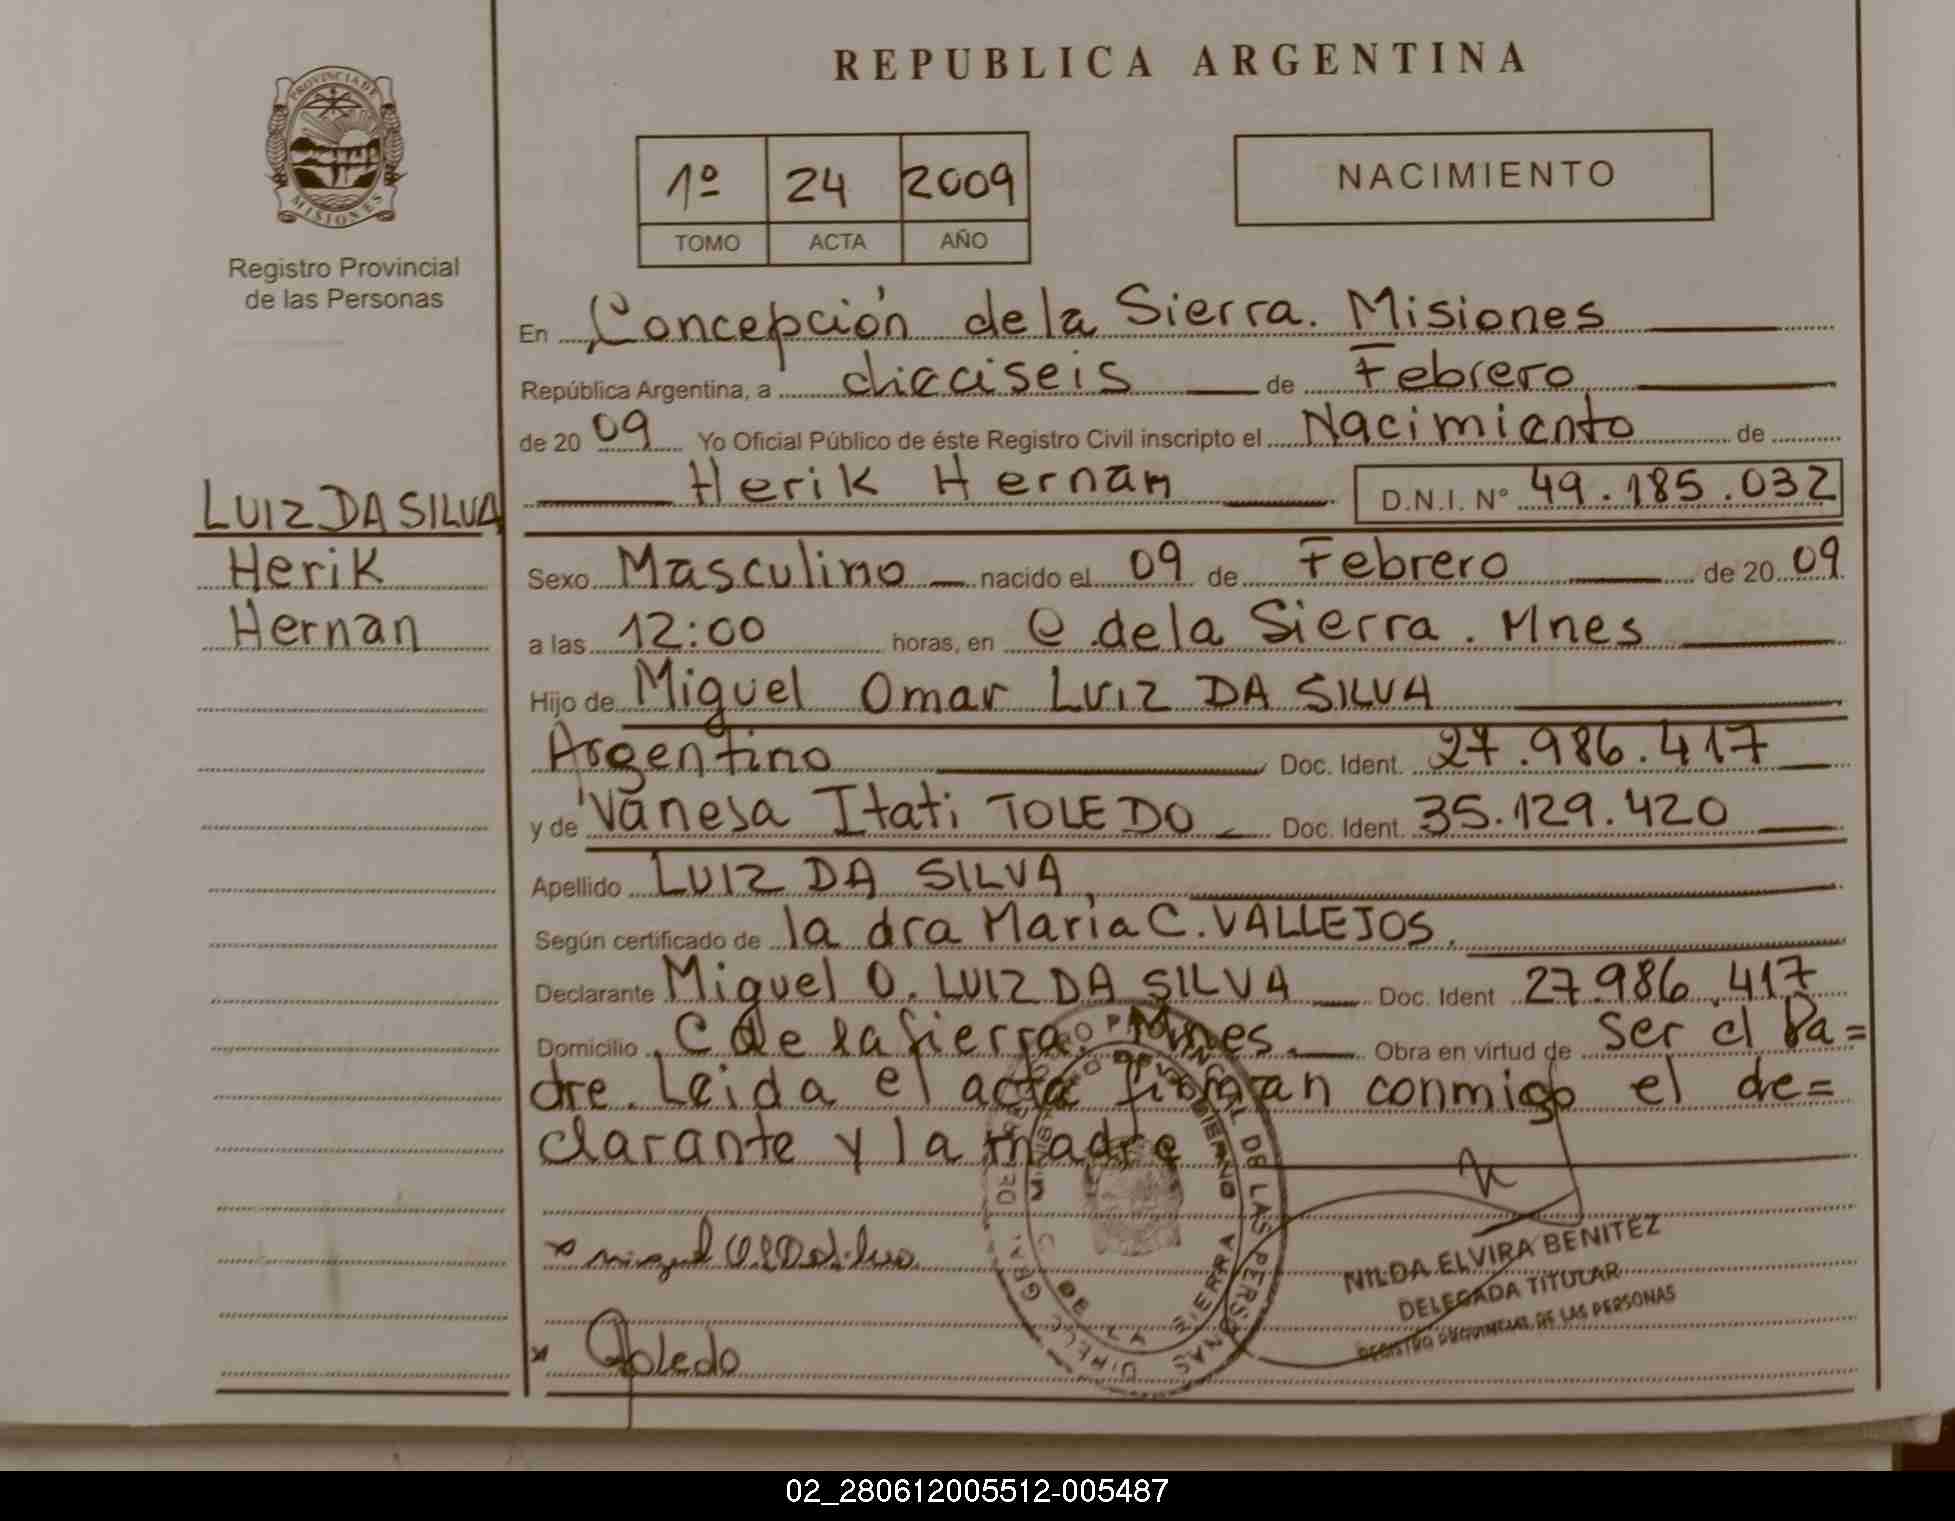 REPUBLICA ARGENTINA
PROVINCIA DE
MISIONES
Registro Provincial
de las Personas
1º 24 2009
TOMO ACTA AÑO
NACIMIENTO
En Concepción de la Sierra. Misiones
República Argentina, a dieciseis de Febrero
de 20 09 Yo Oficial Público de éste Registro Civil inscripto el Nacimiento de
Herik Hernán D.N.I. Nº 49.185.032
LUIZ DA SILVA
Herik
Hernan
Sexo Masculino nacido el 09 de Febrero de 20 09
a las 12:00 horas, en C. de la Sierra. Mnes
Hijo de Miguel Omar LUIZ DA SILVA
Argentino Doc. Ident. 27.986.417
y de Vanesa Itati TOLEDO Doc. Ident. 35.129.420
Apellido LUIZ DA SILVA,
Según certificado de la dra María C. VALLEJOS.
Declarante Miguel O. LUIZ DA SILVA Doc. Ident 27.986.417
Domicilio C de la Sierra. Mnes. Obra en virtud de Ser el Pa=
dre. Leida el acta firman conmigo el de=
clarante y la madre
Toledo
NILDA ELVIRA BENITEZ
DELEGADA TITULAR
REGISTRO PROVINCIAL DE LAS PERSONAS
02_280612005512-005487